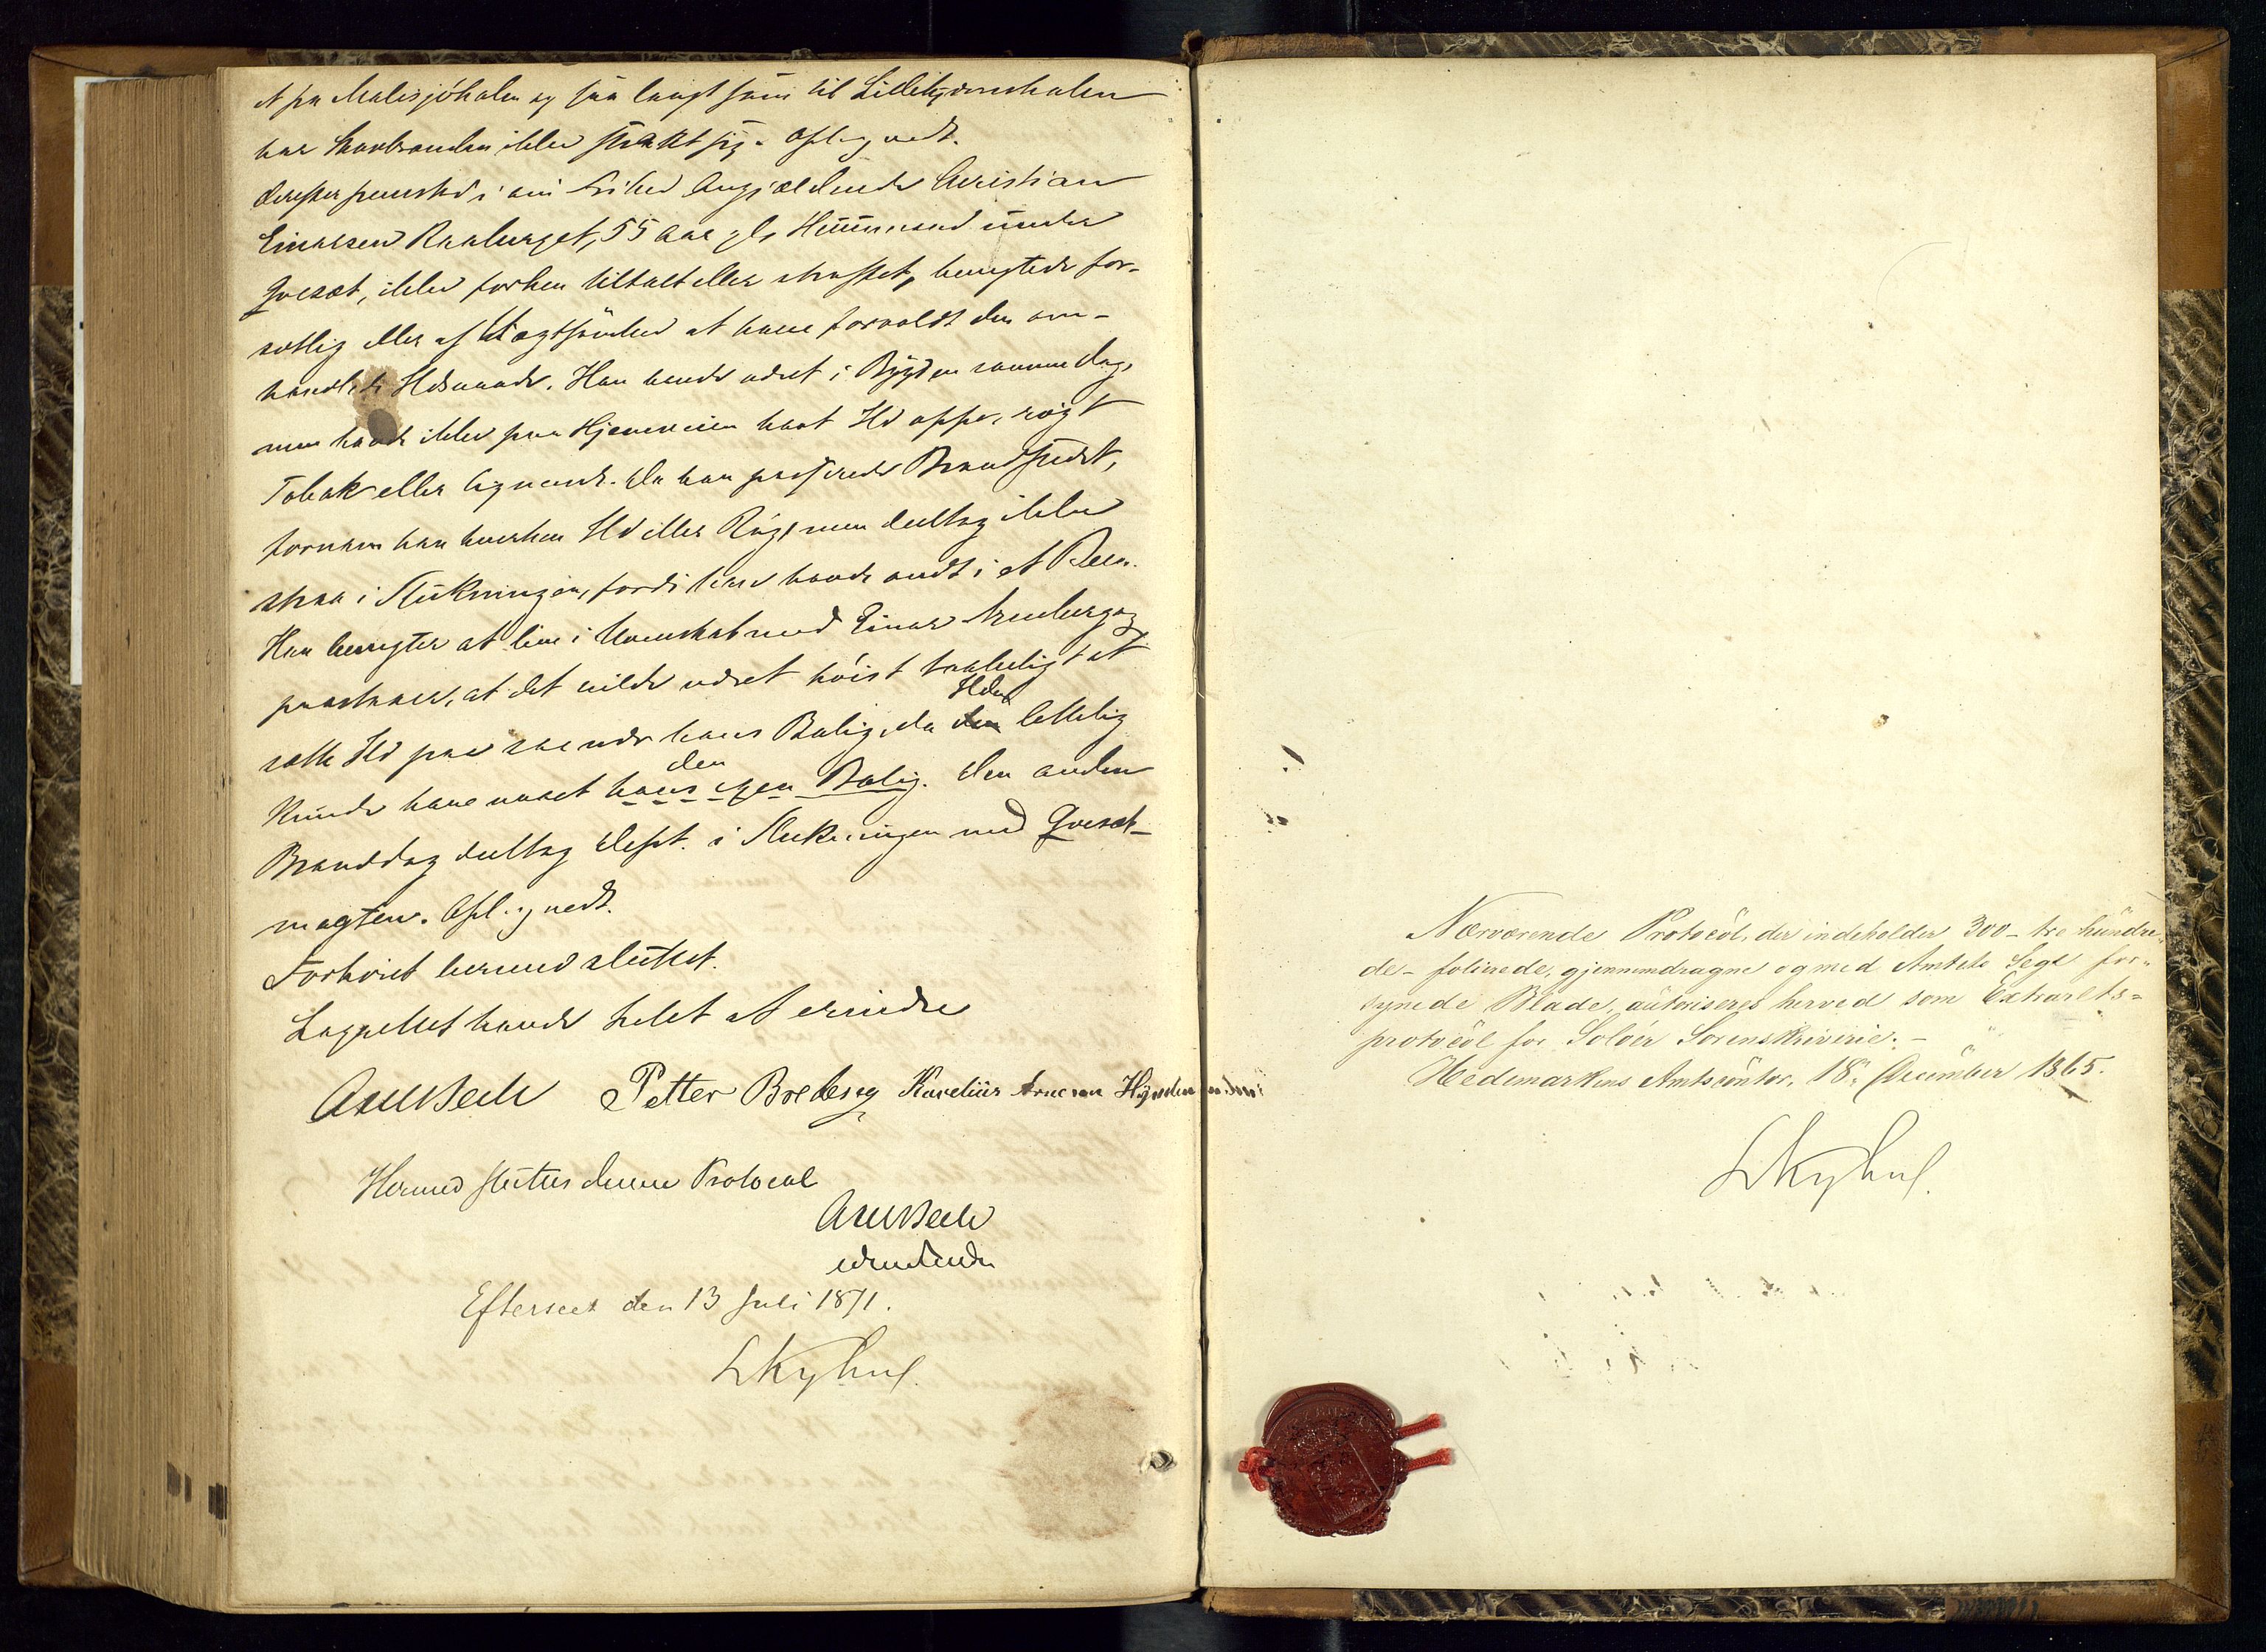 et fra Malisjöhalen og saa langt som til
har Skovbranden ikke strakt sig. Oplæst vedt.
Derefter fremstod i sin Frihed Angjældende Christian
Einarsen Raaberget, 55 Aar gl. Huusmand under
Qvesæt, ikke forhen tiltalt eller straffet, benegtede for-
sætlig eller af Uagtsomhed at have forvoldt den om-
handlede Ildsvaade. Han havde været i Bygden samme Dag,
men havde ikke paa Hjemveien havt Ild oppe, røgt
Tobak eller lignende. Da han passerede Brandstedet,
fornam han hverken Ild eller Røg, men deltog ikke
strax i Slukningen, fordi han havde ondt i et Been.
Han benegter at leve i Uvenskab med Einar og
paastaaer, at det vilde været høist at
sætte Ild paa hans Bolig, da den Ilden lettelig
kunde have naaet hans egen den Bolig. Den anden
Branddag deltog Dept. i Slukningen med Qvesæt-
magten. Opl. og vedt.
Forhöret hermed sluttet.
Lagrettet havde Intet at erindre
Axel Bech Petter Breberg Karelius Arnesen
Hermed sluttes denne Protocol
Axel Bech
Efterseet den 13 Juli 1871.
Nærværende Protocol, der indeholder 300 - tre hundre-
de - folierede, gjennemdragne og med Amtets Segl for-
synede Blade, autoriseres herved som Extrarets-
protocol for Solöer Sorenskriverie. -
Hedemarkens Amtscontor, 18. December 1865.